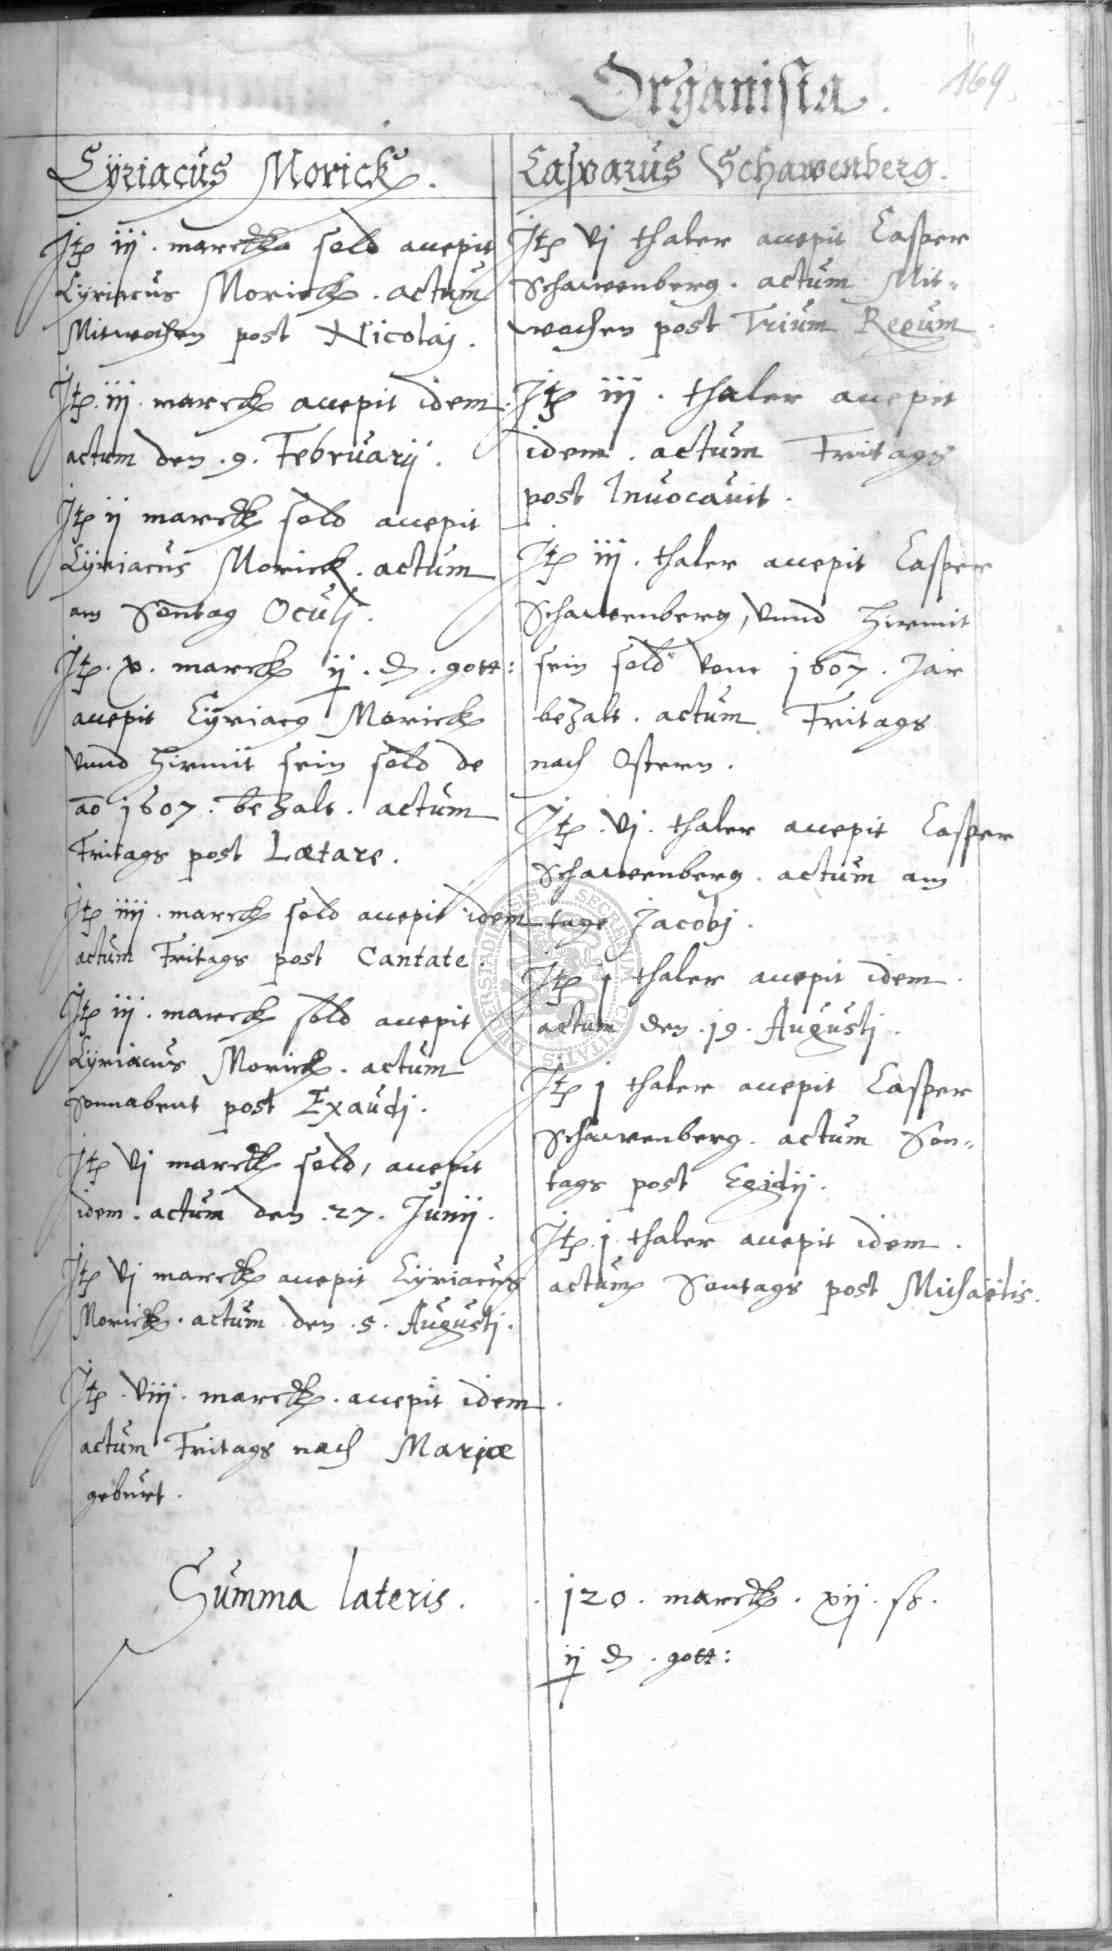 169
Organista.
Cyriacus Morick.
Jtē iij. marck sold accepit
Cyriacus Morick. actum
Mitwochen post Nicolaj.
Jtē. iij. marck accepit idem.
actum den .9. Februarij.
Jtē ij marck sold accepit
Cyriacus Morick. actum
am Sontag Oculj.
Jtē. x. marck ij. d. gott:
accepit Cyriacq Morick
vnnd hirmit sein sold de
ao 1607. bezalt. actum
Fritags post Lætare.
Jtē iiij. marck sold accepit idem
actum Fritags post Cantate.
Jtē iij. marck sold accepit
Cyriacus Morick. actum
Sonnabent post Exaudj.
Jtē vj marck sold, accepit
idem. actum den .27. Junij.
Jtē vj marck accepit Cyriacus
Morick. actum den .5. Augustj.
Jtē. viij. marck. accepit idem.
actum Fritags nach Mariæ
geburt.
Casparus Schawenberg.
Jtē vj thaler accepit Casper
Schawenberg. actum Mit-
wochen post Trium Regum
Jtē iij. thaler accepit
idem. actum Fritags
post Inuocauit.
Jtē iij. thaler accepit Casper
Schawenberg, vnnd hirmit
sein sold vom 1607. Jar
bezalt. actum Fritags
nach Ostern.
Jtē. vj. thaler accepit Casper
Schawenberg. actum am
tage Jacobj.
Jtē j thaler accepit idem.
actum den .19. Augustj.
Jtē j thaler accepit Casper
Schawenberg. actum Son-
tags post Egidij.
Jtē. j. thaler accepit idem.
actum Sontags post Michaëlis.
Summa lateris. 120. marck. xij. ß.
ij d. gott: